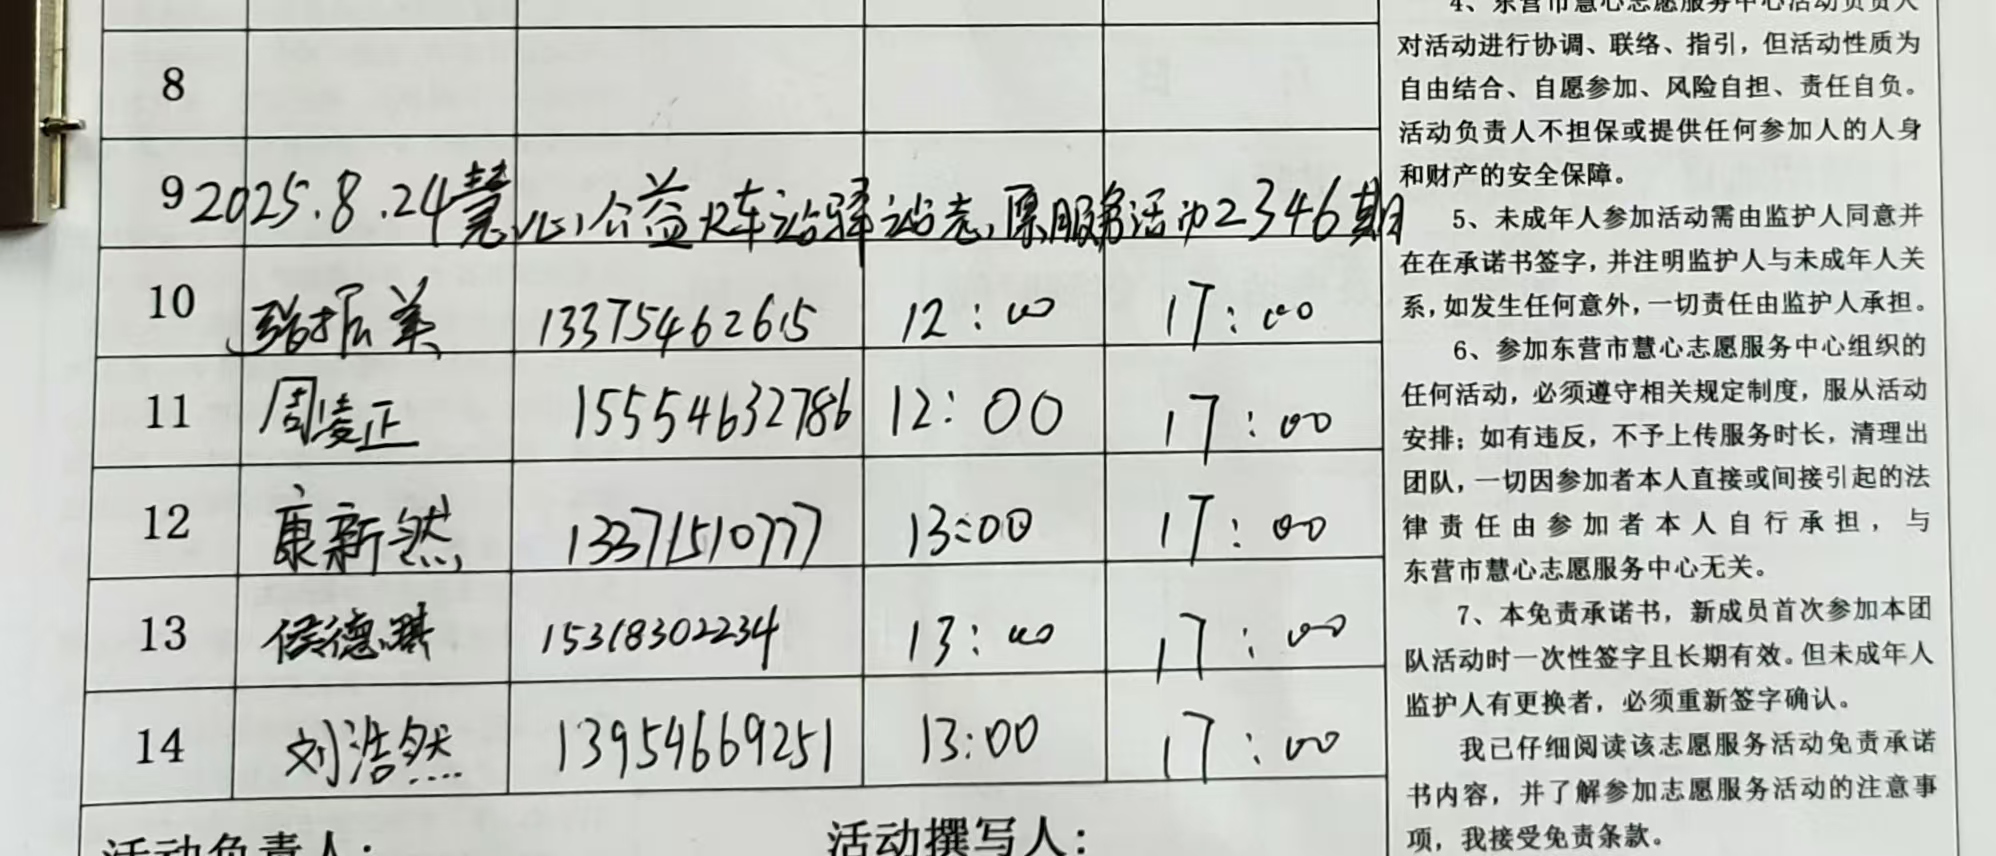 8
9 2025.8.24慧心公益火车站驿站志愿服务活动2346期
10 张振美 13375462615 12:00 17:00
11 周凌正 15554632786 12:00 17:00
12 康新然 13371510777 13:00 17:00
13 侯德琪 15318302234 13:00 17:00
14 刘浩然 13954669251 13:00 17:00
活动负责人:
活动撰写人:
4、东营市慧心志愿服务中心活动负责人
对活动进行协调、联络、指引，但活动性质为
自由结合、自愿参加、风险自担、责任自负。
活动负责人不担保或提供任何参加人的人身
和财产的安全保障。
5、未成年人参加活动需由监护人同意并
在在承诺书签字，并注明监护人与未成年人关
系，如发生任何意外，一切责任由监护人承担。
6、参加东营市慧心志愿服务中心组织的
任何活动，必须遵守相关规定制度，服从活动
安排；如有违反，不予上传服务时长，清理出
团队，一切因参加者本人直接或间接引起的法
律责任由参加者本人自行承担，与
东营市慧心志愿服务中心无关。
7、本免责承诺书，新成员首次参加本团
队活动时一次性签字且长期有效。但未成年人
监护人有更换者，必须重新签字确认。
我已仔细阅读该志愿服务活动免责承诺
书内容，并了解参加志愿服务活动的注意事
项，我接受免责条款。